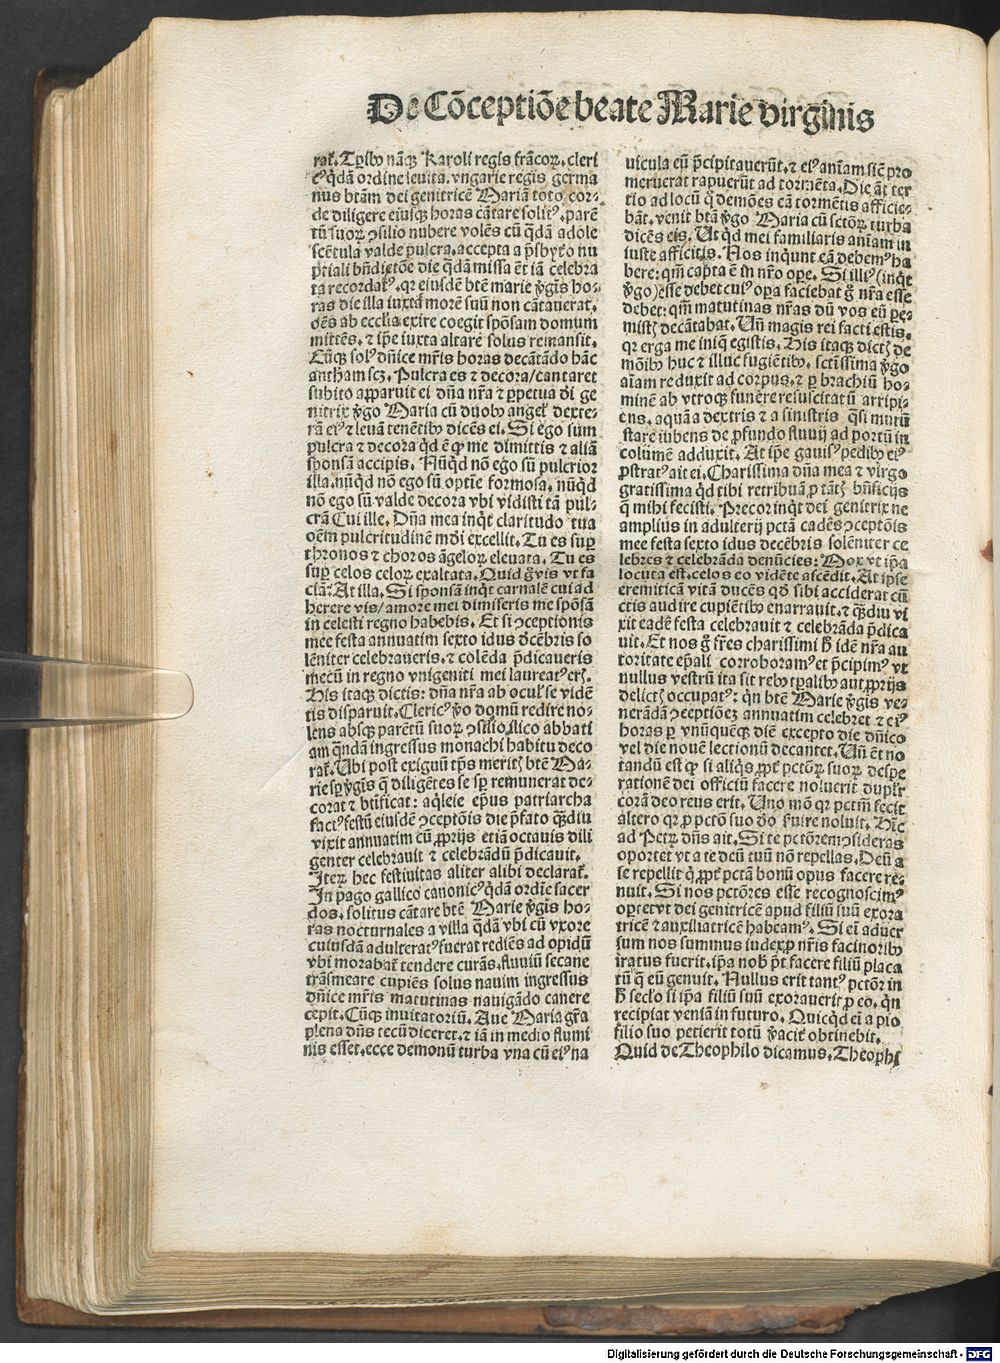 De Cōceptiōe beate Marie virginis
rat᷑. Tꝑib⁹ nāqꝫ Karoli regis frācoꝝ. cleri
c⁹ qͥdā ordine leuita. vngarie regis germa
nus btām dei genitricē Mariā toto cor-
de diligere eiusqꝫ horas cātare solit⁹. parē
tū suoꝝ ꝯsilio nubere volēs cū qͣdā adole
scētula valde pulcra. accepta a p̄sbyt̄o nu
ptiali bn̄dictōe die qͣdā missa et iā celebra
ta recordat⁹. qꝛ eiusdē bt̄e marie v̓gīs ho-
ras die illa iuxta morē suū non cātauerat.
oēs ab ecclīa exire coegit spōsam domum
mittēs. ⁊ ip̄e iuxta altare solus remansit.
Cūqꝫ sol⁹ dn̄ice mr̄is horas decātādo hāc
antham scꝫ. Pulcra es ⁊ decora/cantaret
subito apparuit ei dn̄a nr̄a ⁊ ꝑpetua dī ge
nitrix v̓go Maria cū duob⁹ angel̓ dexte-
rā ei⁹ ⁊ leuā tenētib⁹ dicēs ei. Si ego sum
pulcra ⁊ decora qͥd ē ꝙ me dimittis ⁊ aliā
sponsā accipis. Nūqͥd nō ego sū pulcrior
illa. nūqͥd nō ego sū optīe formosa. nūqͥd
nō ego sū valde decora vbi vidisti tā pul-
crā Cui ille. Dn̄a mea inqͥt claritudo tua
oēm pulcritudinē mūdi excellit. Tu es suꝑ
thronos ⁊ choros āgeloꝝ eleuata. Tu es
suꝑ celos celoꝝ exaltata. Quid g̊ vis vt fa
ciā: At illa. Si sponsā inqͥt carnalē cui ad
herere vis/amore mei dimiseris me spōsā
in celesti regno habebis. Et si ꝯceptionis
mee festa annuatim sexto idus decēbris so
lēniter celebraueris. ⁊ colēda p̄dicaueris
mecū in regno vnigeniti mei laureat⁹ eris.
His itaqꝫ dictis: dn̄a nr̄a ab ocul̓ se vidē
tis disparuit. Cleric⁹ v̓o domū redire no-
lens absqꝫ parētū suoꝝ ꝯsilio illico abbati
am qͣndā ingressus monachi habitu deco
rat᷑. Ubi post exiguū tp̄s meritis bt̄e Ma-
rie v̓gīs q̄ diligētes se sꝑ remunerat de-
corat ⁊ bt̄ificat: aqͥleie ep̄us patriarcha
fact⁹ festū eiusdē ꝯceptōis die p̄fato qͣꝫdiu
vixit annuatim cū ꝓprijs etiā octauis dili
genter celebrauit ⁊ celebrādū p̄dicauit.
Iteꝝ hec festiuitas aliter alibi declarat᷑.
In pago gallico canonic⁹ qͥdā ordīe sacer
dos. solitus cātare bt̄e Marie v̓gīs ho-
ras nocturnales a villa qͣdā vbi cū vxore
cuiusdā adulterat⁹ fuerat rediēs ad opidū
vbi morabat᷑ tendere curās. fluuiū secane
trāsmeare cupiēs solus nauim ingressus
dn̄ice mr̄is matutinas nauigādo canere
cepit. Cūqꝫ inuitatoriū. Aue Maria gr̄a
plena dn̄s tecū diceret. ⁊ iā in medio flumi
nis esset. ecce demonū turba vna cū ei⁹ na
uicula eū p̄cipitauerūt. ⁊ ei⁹ aīam sic̄ pro
meruerat rapuerūt ad tormēta. Die āt ter
tio ad locū q̊ demōes eā tormētis afficie-
bāt. venit btā v̓go Maria cū sctōꝝ turba
dicēs eis. Ut qͥd mei familiaris aīam in
iuste afficitis. Nos inqͥunt eā debem⁹ ha
bere: qm̄ capta ē in nr̄o oꝑe. Si illi⁹ (inqͥt
v̓go) esse debet cui⁹ oꝑa faciebat g̊ nr̄a esse
debet: qm̄ matutinas nr̄as dū vos eū ꝑe-
mistis decātabat. Un̄ magis rei facti estis.
qꝛ erga me iniq̄ egistis. His itaqꝫ dictis de
mōib⁹ huc ⁊ illuc fugiētib⁹. sctīssima v̓go
aīam reduxit ad corpus. ⁊ ꝑ brachiū ho-
minē ab vtroqꝫ funere resuscitatū arripi-
ens. aquā a dextris ⁊ a sinistris qͣsi murū
stare iubens de ꝓfundo fluuij ad portū in
columē adduxit. At ip̄e gauis⁹ pedib⁹ ei⁹
ꝓstrat⁹ ait ei. Charissima dn̄a mea ⁊ virgo
gratissima qͥd tibi retribuā ꝓ tātis bn̄ficijs
q̄ mihi fecisti. Precor inqͥt dei genitrix ne
amplius in adulterij pctā cadēs ꝯceptōis
mee festa sexto idus decēbris solēniter ce
lebres ⁊ celebrāda denūcies: Mox vt ip̄a
locuta est. celos eo vidēte ascēdit. At ipse
eremiticā vitā ducēs qd̊ sibi acciderat cū
ctis audire cupiētib⁹ enarrauit. ⁊ qͣꝫdiu vi
xit eadē festa celebrauit ⁊ celebrāda p̄dica
uit. Et nos g̊ fr̄es charissimi h̄ idē nr̄a au
toritate ep̄ali corroboram⁹ et p̄cipim⁹ vt
nullus vestrū ita sit reb⁹ tꝑalib⁹ aut ꝓprijs
delictis occupat⁹: qͥn bt̄e Marie v̓gīs ve-
nerādā ꝯceptiōeꝫ annuatim celebret ⁊ ei⁹
horas ꝑ vnūquēqꝫ diē excepto die dn̄ico
vel die nouē lectionū decantet. Un̄ et no
tandū est ꝙ si aliqͥs ꝓpt̄ pctōꝝ suoꝝ despe
rationē dei officiū facere noluerit dupl̓r
corā deo reus erit. Uno mō qꝛ pctm̄ fecit
altero qꝛ ꝓ pctō suo dō ẜuire noluit. Hīc
ad Petꝝ dn̄s ait. Si te pctōrem ꝯsideras
oportet vt a te deū tuū nō repellas. Deū a
se repellit qͥ ꝓpt̄ pctā bonū opus facere re-
nuit. Si nos pctōres esse recognoscim⁹
oꝑtet vt dei genitricē apud filiū suū exora
tricē ⁊ auxiliatricē habeam⁹. Si ei aduer
sum nos summus iudex ꝓ nr̄is facinorib⁹
iratus fuerit. ip̄a nob̓ pt̄ facere filiū placa
tū q̄ eū genuit. Nullus erit tant⁹ pctōꝛ in
h̄ secl̓o si ip̄a filiū suū exorauerit ꝓ eo. qͥn
recipiat veniā in futuro. Quicqͥd ei a pio
filio suo petierit totū v̓acit᷑ obtinebit.
Quid de Theophilo dicamus. Theophi
Digitalisierung gefördert durch die Deutsche Forschungsgemeinschaft - DFG